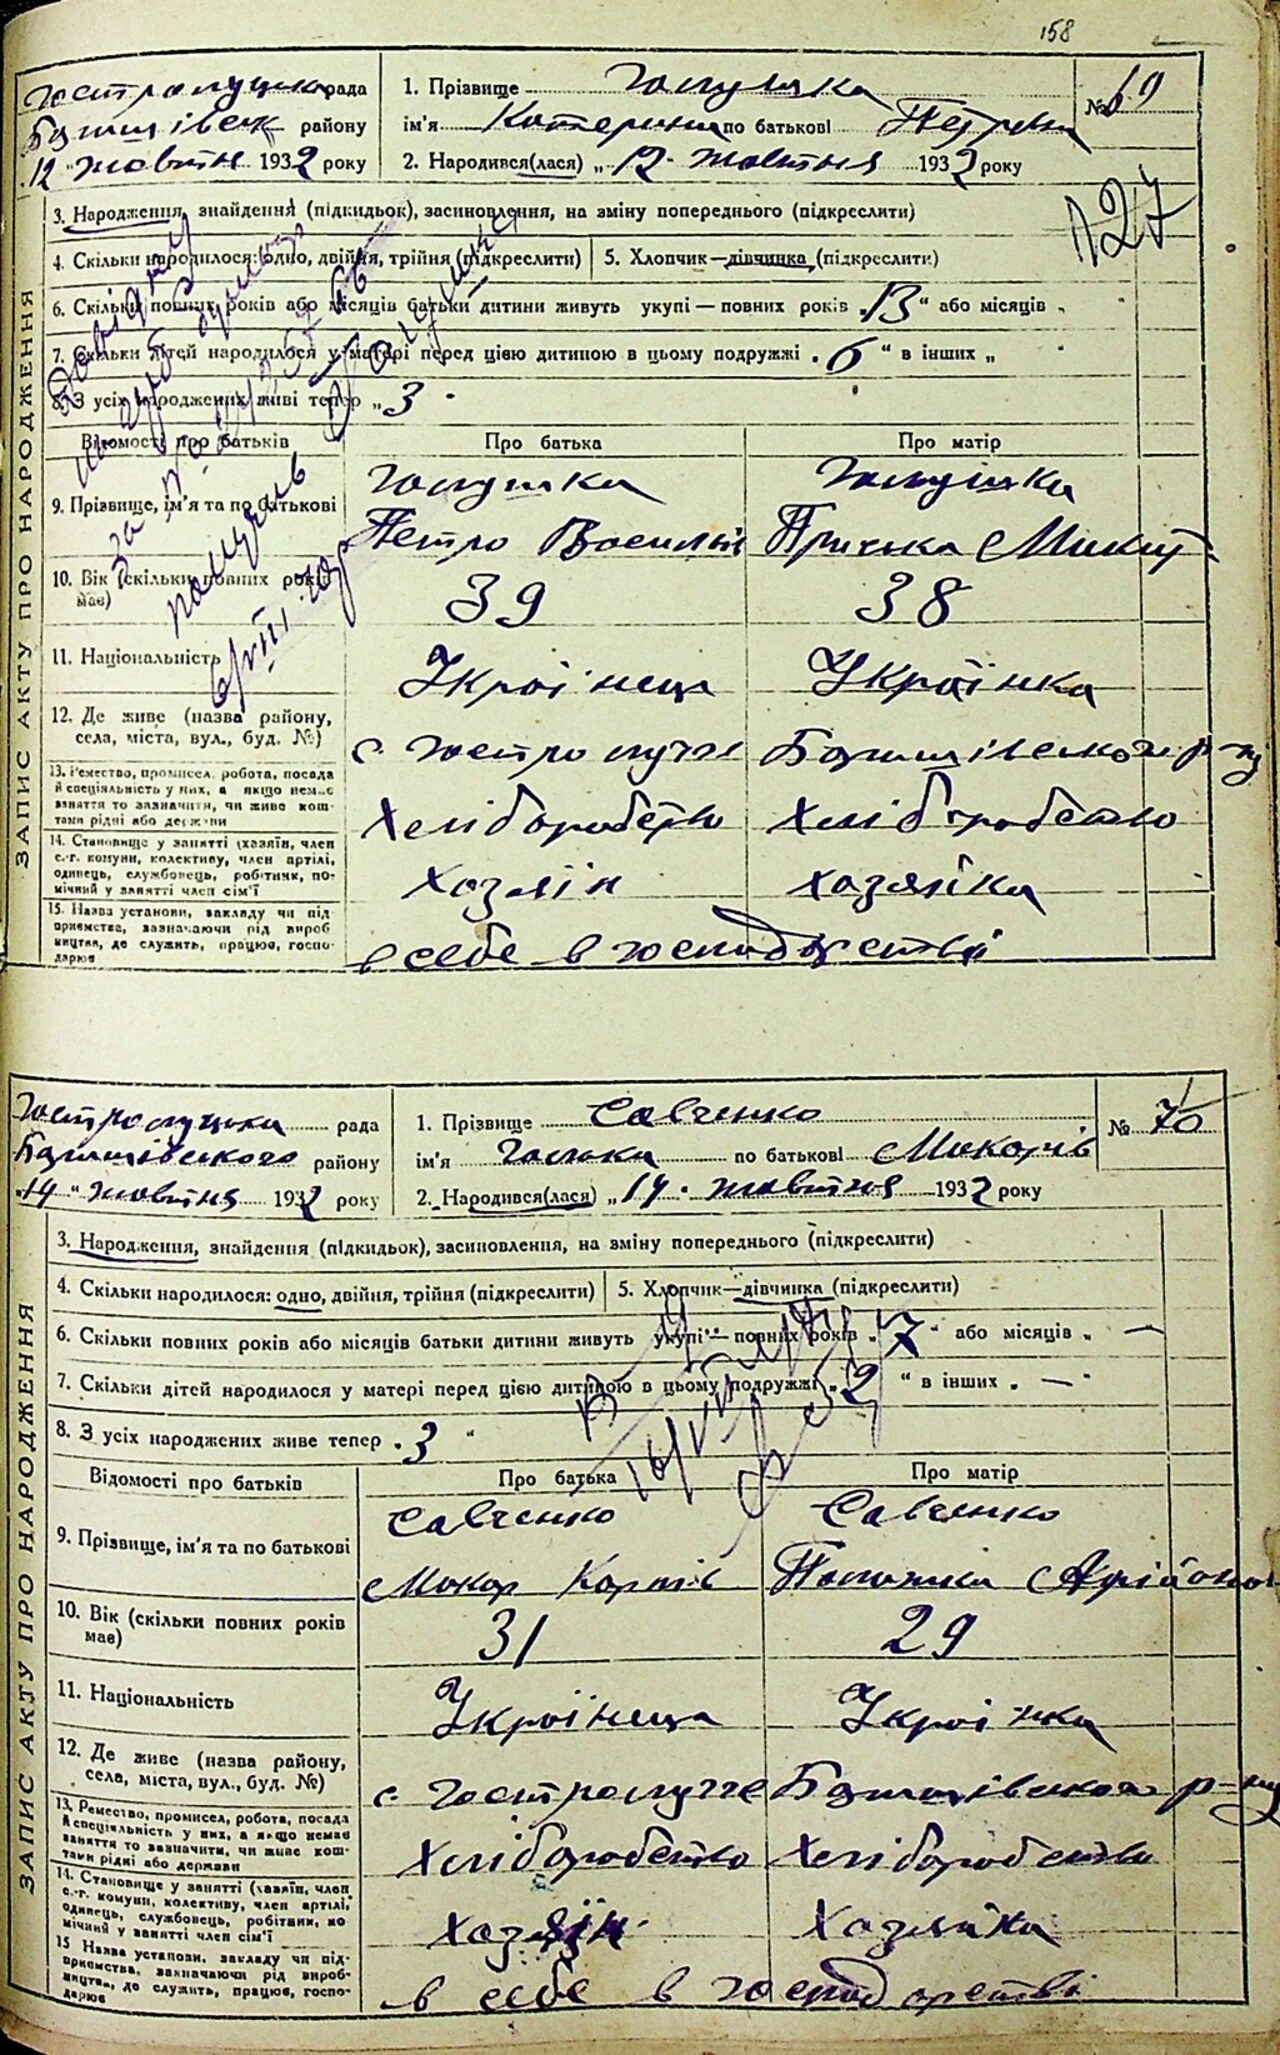 158
Гостролуцька рада
Баришівськ району
12 " жовтня 1932 року
1. Прізвище Галушка
ім'я Катерина по батькові Петрівна
2. Народився(лася) „ 12 жовтня 1932 року
№ 69
127
ЗАПИС АКТУ ПРО НАРОДЖЕННЯ
3. Народження, знайдення (підкидьок), засиновлення, на зміну попереднього (підкреслити)
4. Скільки народилося: одно, двійня, трійня (підкреслити)
5. Хлопчик—дівчинка (підкреслити)
6. Скільки повних років або місяців батьки дитини живуть укупі — повних років „13" або місяців „
7. Скільки дітей народилося у матері перед цією дитиною в цьому подружжі „6" в інших „
8. З усіх народжених живі тепер „3"
Відомості про батьків Про батька Про матір
9. Прізвище, ім'я та по батькові
Галушка Галушка
Петро Василів Приська Микит
10. Вік (скільки повних років має) 39 38
11. Національність Українець Українка
12. Де живе (назва району, села, міста, вул., буд. №)
с. Гостролуччє Баришівського р-ну
13. Ремество, промисел, робота, посада
й спеціяльність у них, а якщо немає
заняття то зазначити, чи живе кош-
тами рідні або держави
Хліборобство Хліборобство
14. Становище у занятті (хазяїн, член
с.-г. комуни, колективу, член артілі,
одинець, службовець, робітник, по-
мічний у занятті член сім'ї
Хазяїн хазяйка
15. Назва установи, закладу чи під
приємства, зазначаючи рід вироб
ництва, де служить, працює, госпо-
дарює
в себе в господарстві
Гостролуцька рада
Баришівського району
„14" жовтня 1932 року
1. Прізвище Савченко
ім'я Галька по батькові Макарів
2. Народився(лася) „14. жовтня 1932 року
№ 70
ЗАПИС АКТУ ПРО НАРОДЖЕННЯ
3. Народження, знайдення (підкидьок), засиновлення, на зміну попереднього (підкреслити)
4. Скільки народилося: одно, двійня, трійня (підкреслити)
5. Хлопчик—дівчинка (підкреслити)
6. Скільки повних років або місяців батьки дитини живуть укупі — повних років „7" або місяців „ —
7. Скільки дітей народилося у матері перед цією дитиною в цьому подружжі „2" в інших „ — "
8. З усіх народжених живе тепер „3"
Відомості про батьків Про батька Про матір
9. Прізвище, ім'я та по батькові
Савченко Савченко
Макар Карпів
10. Вік (скільки повних років має) 31 29
11. Національність Українець Українка
12. Де живе (назва району, села, міста, вул., буд. №)
с. Гостролуччє Баришівського р-ну
13. Ремество, промисел, робота, посада
й спеціяльність у них, а якщо немає
заняття то зазначити, чи живе кош-
тами рідні або держави
Хліборобство Хліборобство
14. Становище у занятті (хазяїн, член
с.-г. комуни, колективу, член артілі,
одинець, службовець, робітник, по-
мічний у занятті член сім'ї
Хазяїн Хазяйка
15 Назва установи, закладу чи під-
приємства, зазначаючи рід вироб-
ництва, де служить, працює, госпо-
дарює
в себе в господарстві